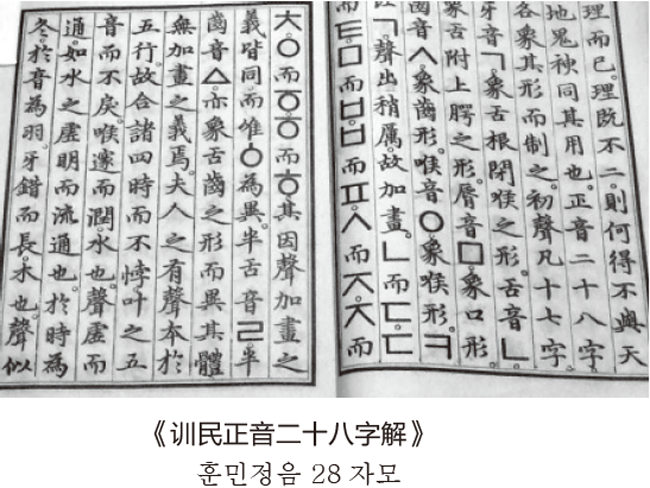 理而已。理既不二。則何得不與天
地鬼神同其用也。正音二十八字。
各象其形而制之。初聲凡十七字。
牙音ㄱ。象舌根閉喉之形。舌音ㄴ。
象舌附上腭之形。脣音ㅁ。象口形。
齒音ㅅ。象齒形。喉音ㅇ。象喉形。ㅋ
比ㄱ。聲出稍厲。故加畫。ㄴ而ㄷ。ㄷ
而ㅌ。ㅁ而ㅂ。ㅂ而ㅍ。ㅅ而ㅈ。ㅈ而
ㅊ。ㅇ而ㆆ。ㆆ而ㅎ。其因聲加畫之
義皆同。而唯ㆁ為異。半舌音ㄹ。半
齒音ㅿ。亦象舌齒之形而異其體。
無加畫之義焉。夫人之有聲本於
五行。故合諸四時而不悖。叶之五
音而不戾。喉邃而潤。水也。聲虛而
通。如水之虛明而流通也。於時為
冬。於音為羽。牙錯而長。木也。聲似
《训民正音二十八字解》
훈민정음 28 자모